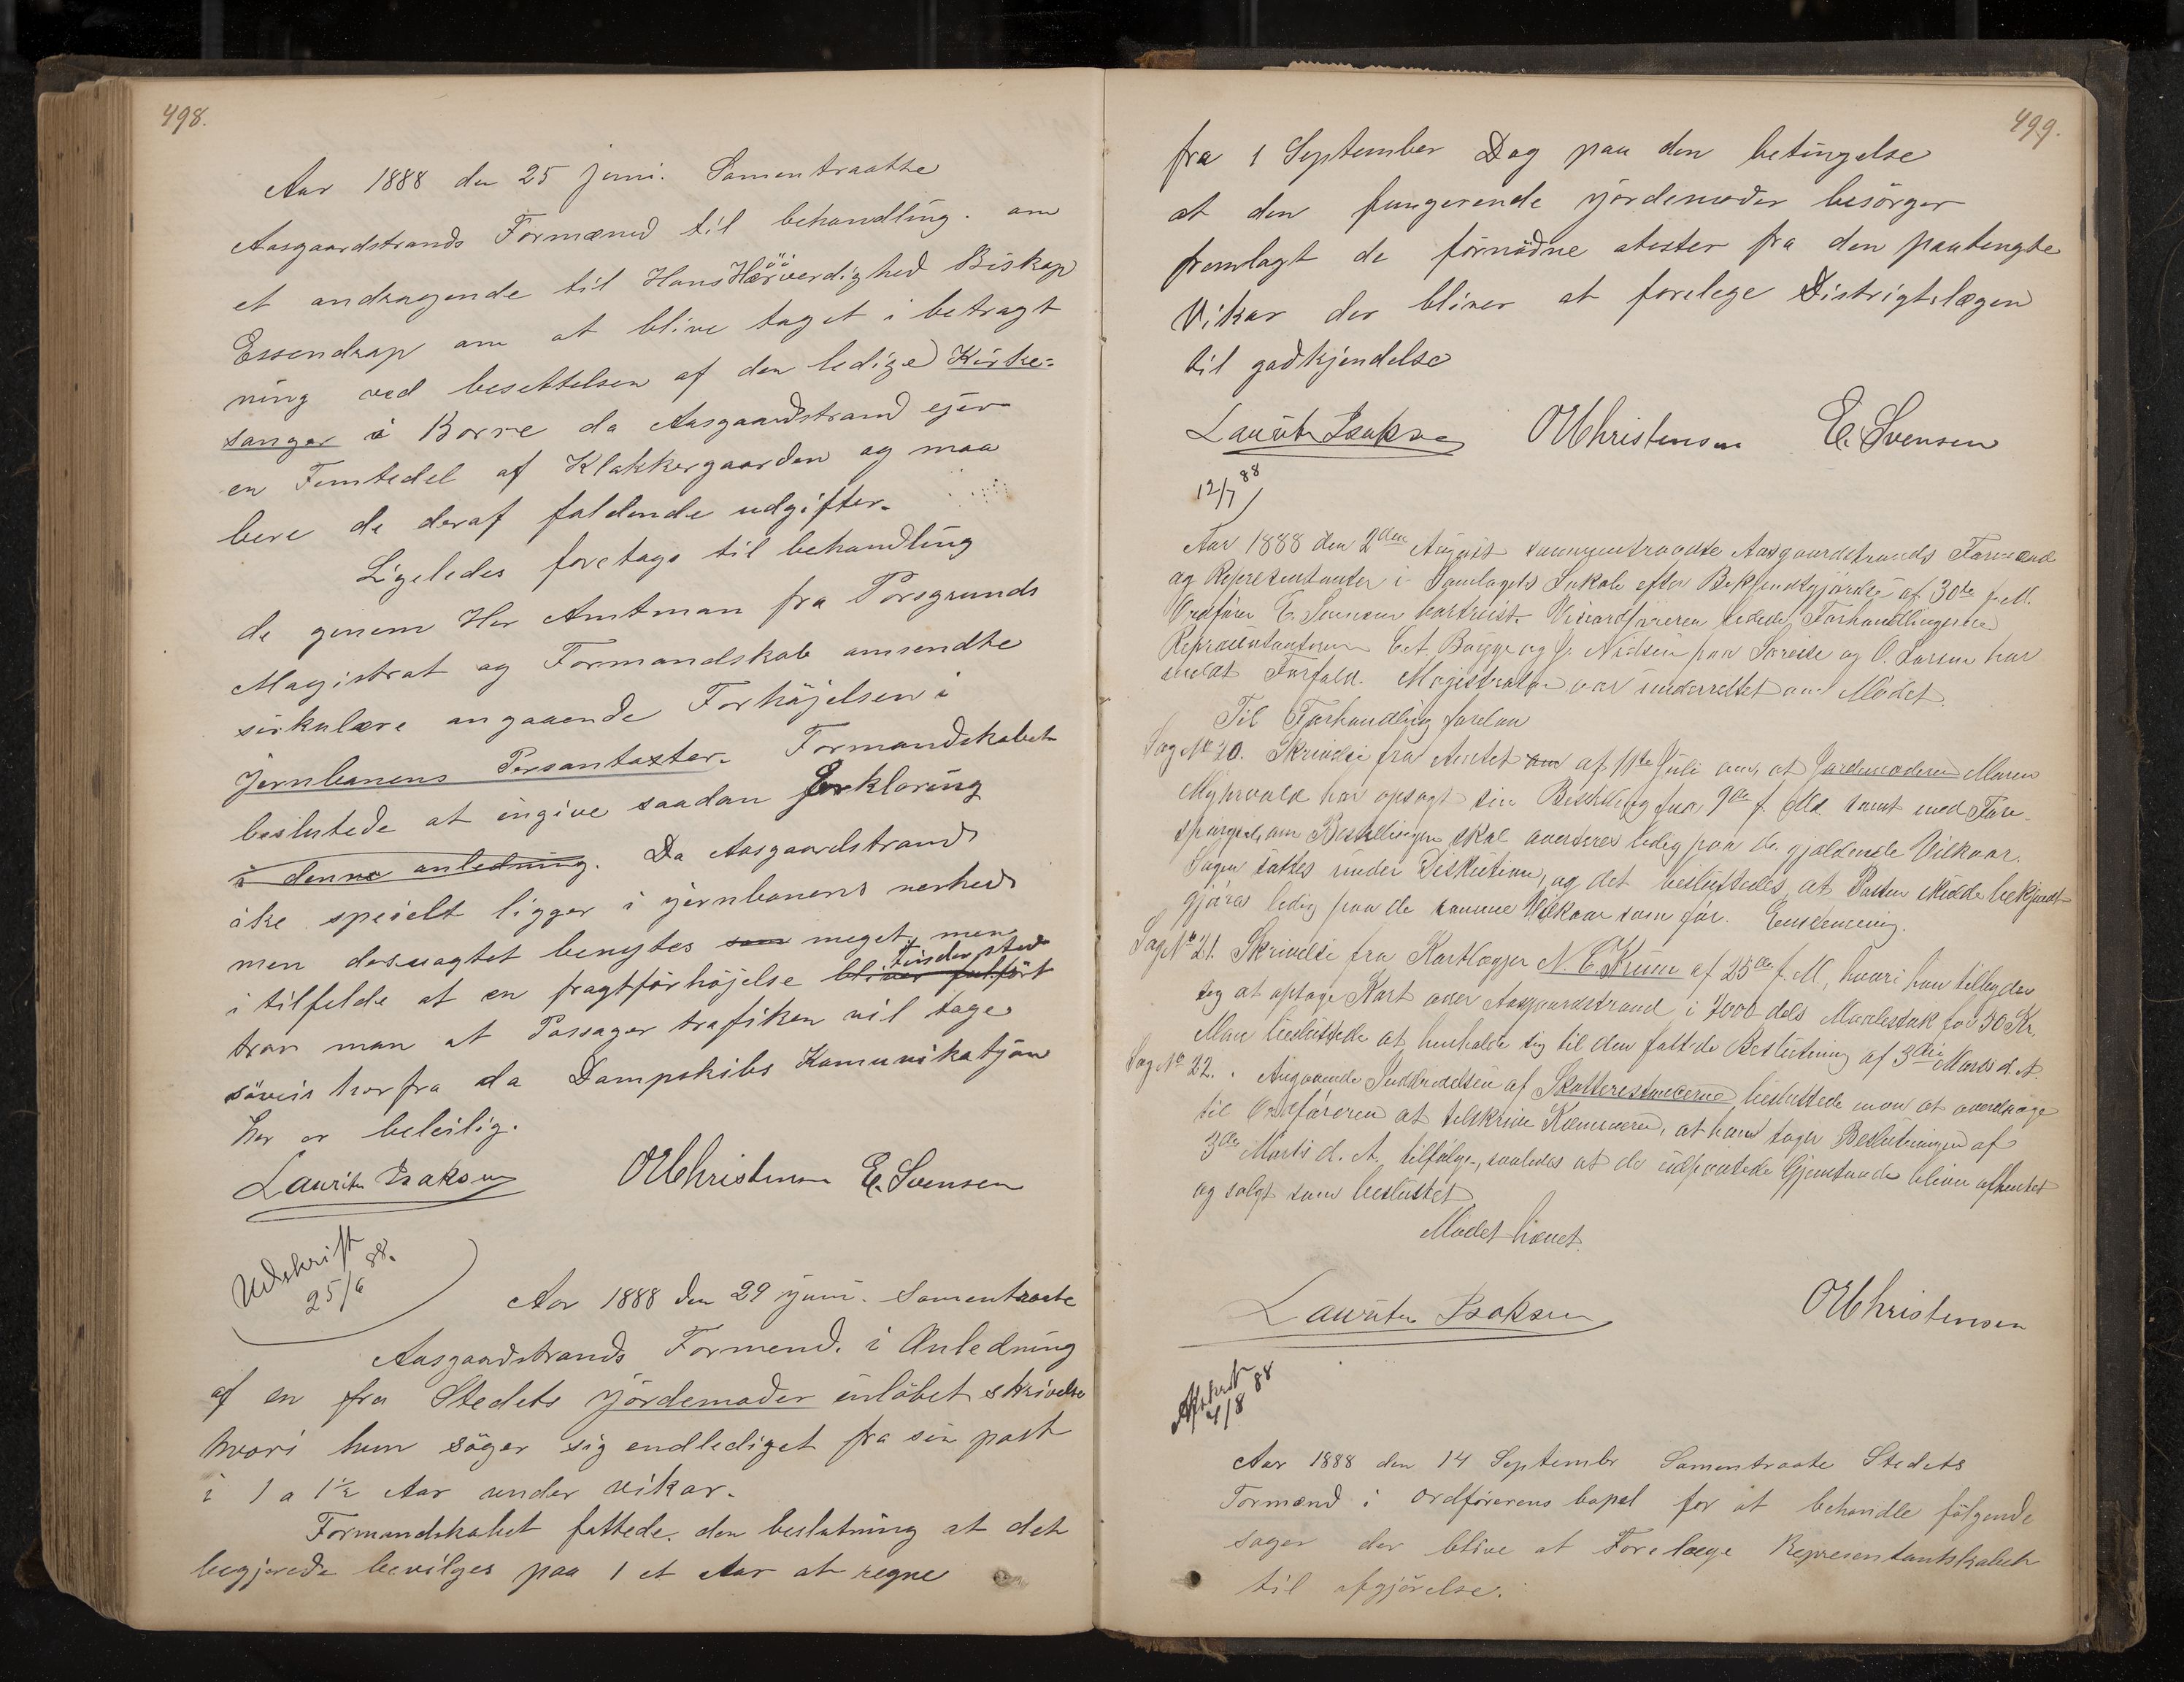 498.
Aar 1888 den 25 juni. Samentraatte
Aasgaardstrands Formænd til behandling. om
et andragende til Hans Hærværdighed Biskop
Essendrap om at blive taget i betragt
ning ved besættelsen af den ledige Kirke=
sanger i Borre da Aasgaardstrand ejer
en Femtedel af Klokkergaarden og maa
bere de deraf faldende udgifter.
Ligeledes foretags til behandling
de genem Her Amtman fra Porsgrunds
Magistrat og Formandskab omsendte
sirkulære angaaende Forhöjelsen i
Jernbanens Persontaxter. Formandskabet
beslutede at ingive saadan Erkloring
i denne anledning. Da Aasgaardstrand
ike speielt ligger i jernbanens nerhed
men desuagtet benyttes som meget, men
i tilfelde at en fragtforhöjelse bliver Finder sted
tror man at Passager trafiken vil tage
sövein herfra da Dampskibs Komunikatjon
her er beleilig.
Lauritz Isaksen OMChristensen E. Svensen
Udskrift
25/6 88.
Aar 1888 den 29 juni. Samentraate
Aasgaardstrands Formend. i Anledning
af en fra Stedets jördemoder inlöbet skrivelse
hvori hun söger sig endlediget fra sin post
i 1 a 1½ Aar under vikar.
Formandskabet fattede den beslutning at det
begjerede bevilges paa 1 et Aar at regne
499.
fra 1 September Dag paa den betingelse
at den fungerende jördemoder besörger
fremlagt de fornödne atester fra den paatengte
Vikar der bliver at forelege Distrigtslægen
til godkjendelse
Lauritz Isaksen OMChristensen E. Svensen
12/7 88
Aar 1888 den 2den August sammentraadte Aasgaardstrands Formænd
og Repræsentanter i Samlagets Lokale efter Bekjendtgjørelse af 30te f. M.
Ordfører E. Svensen bortreist. Viceordføreren ledede Forhandlingerne
Repræsentanterne Bøgge og J. Nielsen paa Søreise og O. Larsen har
meldt Forfald. Magistraten var underrettet om Mødet.
Til Forhandling forelaa
Sag No 20. Skrivelse fra Amtet om af 11te Juli om, at Jordemoderen Maren
Myhrvold har opsagt sin Bestilling fra 9de f. Md. samt med Fore-
spørgsel, om Bestillingen skal averteres ledig paa de gjældende Vilkaar.
Sagen sattes under Diskution, og det besluttedes, at Posten skulde bekjendt-
gjøres ledig paa de samme Vilkaar som før. Enstemmig.
Sag No 21. Skrivelse fra Kartlægger N. C. Krum af 25de f. M, hvori han tilbyder
sig at optage Kart over Aasgaardstrand i 2000 dels Maalestok for 50 Kr.
Man besluttede at henholde sig til den fattede Beslutning af 3die Marts d. A.
Sag No 22. Angaaende Inddrivelsen af Skatterestancerne besluttede man at overdrage
til Ordføreren at tilskrive Kæmneren, at han tager Beslutningen af
3die Marts d. A. tilfølge, saaledes at de udpantede Gjenstande bliver afhentet
og solgt som besluttet.
Mødet hævet.
Lauritz Isaksen OMChristensen
Afskrift
4/8 88
Aar 1888 den 14 Septembr Samentraate Stedets
Formænd i ordførerens bopel for at behandle fölgende
sager der blive at Forelæge Representantskabet
til afgjörelse.